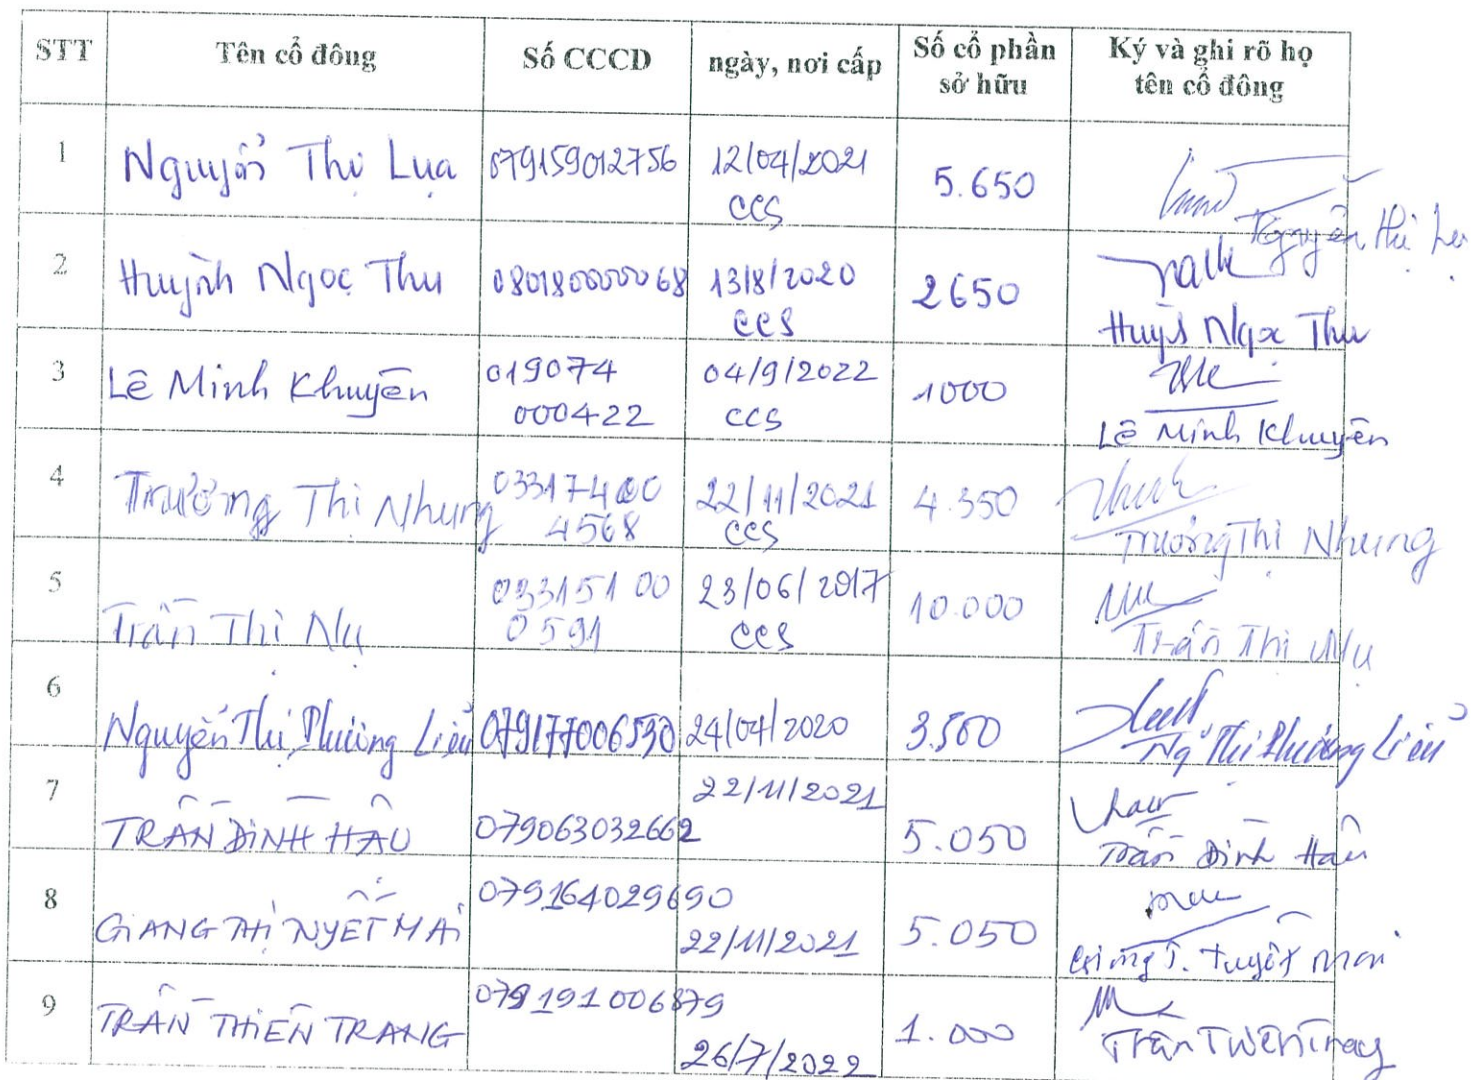 STT Tên cổ đông Số CCCD ngày, nơi cấp Số cổ phần sở hữu Ký và ghi rõ họ tên cổ đông
1 Nguyễn Thị Lụa 079159012756 12/04/2021 CCS 5.650 Nguyễn Thị Lụa
2 Huỳnh Ngọc Thu 080180000068 13/8/2020 CCS 2650 Huỳnh Ngọc Thu
3 Lê Minh Khuyên 019074 000422 04/9/2022 CCS 1000 Lê Minh Khuyên
4 Trương Thị Nhung 03317400 4568 22/11/2021 CCS 4.350 Trương Thị Nhung
5 Trần Thị Nụ 033151 00 0591 23/06/2017 CCS 10.000 Trần Thị Nụ
6 Nguyễn Thị Phương Liễu 079177006530 24/04/2020 3.500 Ng Thị Phương Liễu
7 TRẦN ĐÌNH HẬU 079063032662 22/11/2021 5.050 Trần Đình Hậu
8 GIANG THỊ TUYẾT MAI 079164029690 22/11/2021 5.050 Giang T. Tuyết Mai
9 TRẦN THIÊN TRANG 079191006879 26/7/2022 1.000 Trần Thiên Trang